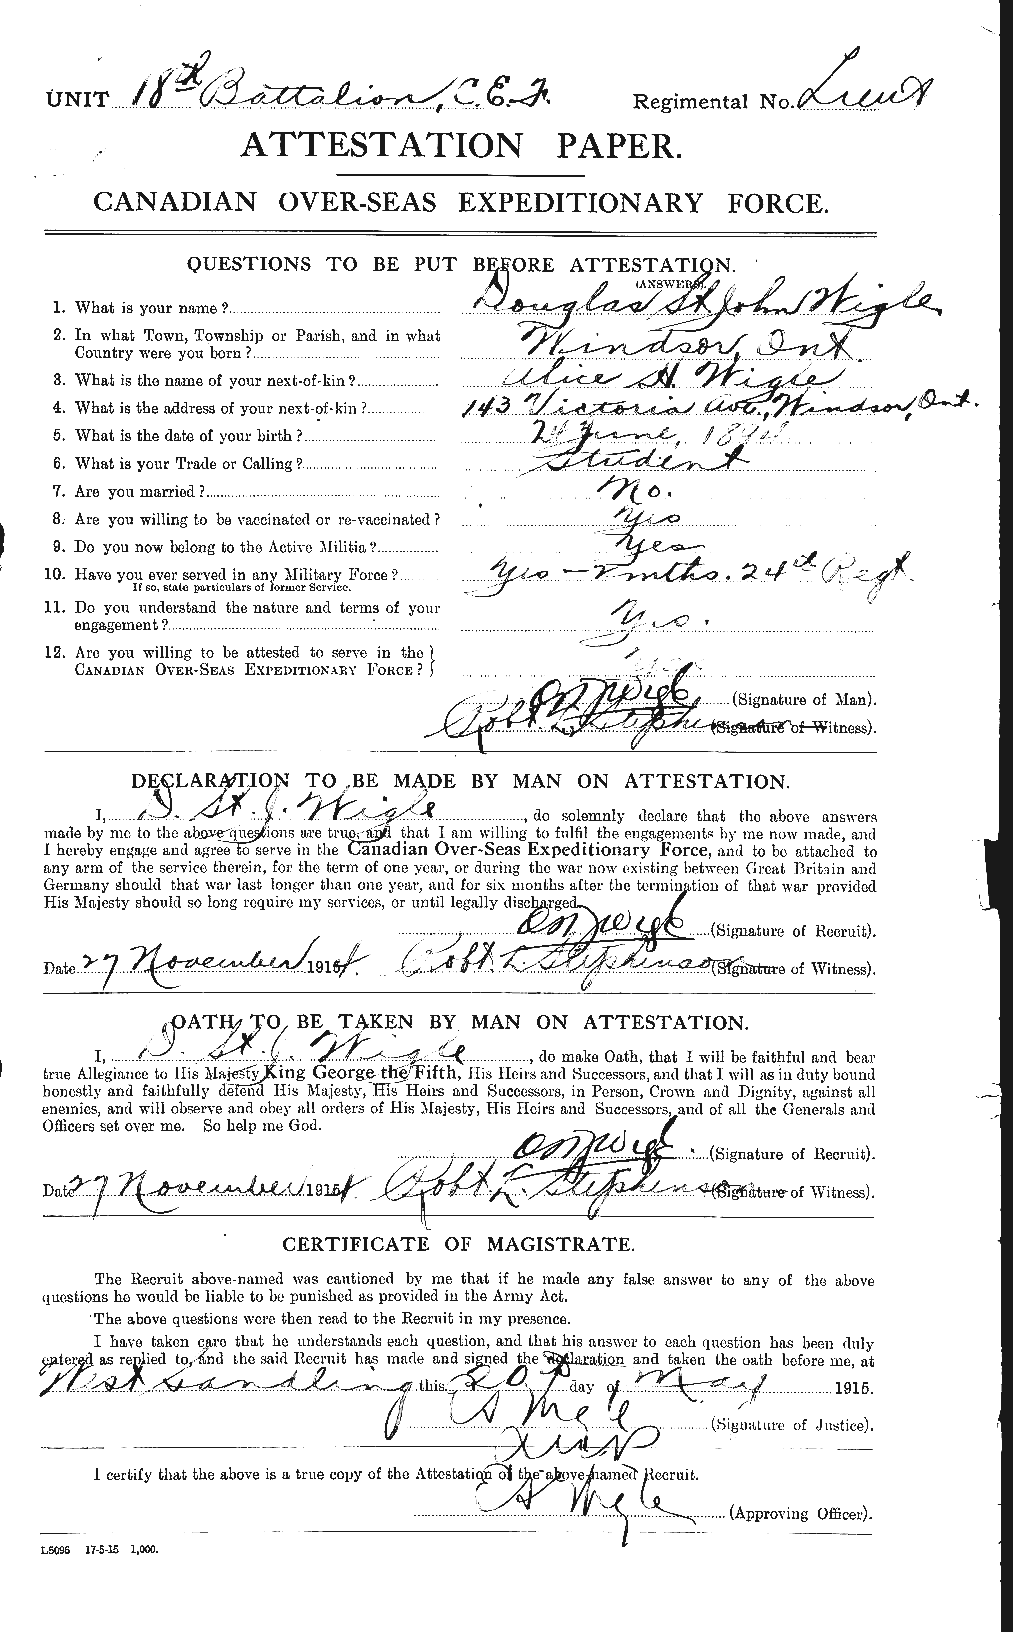 UNIT 18th Battalion, C.E.F. Regimental No. Lieut
ATTESTATION PAPER.
CANADIAN OVER-SEAS EXPEDITIONARY FORCE.
QUESTIONS TO BE PUT BEFORE ATTESTATION.
(ANSWERS).
1. What is your name? Douglas St John Wigle
2. In what Town, Township or Parish, and in what
Country were you born? Windsor, Ont.
3. What is the name of your next-of-kin? Alice H. Wigle
4. What is the address of your next-of-kin? 143 Victoria Ave., Windsor, Ont.
5. What is the date of your birth? June, 189
6. What is your Trade or Calling? Student
7. Are you married? No.
8. Are you willing to be vaccinated or re-vaccinated? Yes
9. Do you now belong to the Active Militia? Yes
10. Have you ever served in any Military Force? Yes – mths. 24th Regt
If so, state particulars of former Service.
11. Do you understand the nature and terms of your
engagement? Yes.
12. Are you willing to be attested to serve in the
CANADIAN OVER-SEAS EXPEDITIONARY FORCE? Yes
Wigle (Signature of Man).
Robt. L. Stephenson (Signature of Witness).
DECLARATION TO BE MADE BY MAN ON ATTESTATION.
I, D. St. J. Wigle, do solemnly declare that the above answers
made by me to the above questions are true, and that I am willing to fulfil the engagements by me now made, and
I hereby engage and agree to serve in the Canadian Over-Seas Expeditionary Force, and to be attached to
any arm of the service therein, for the term of one year, or during the war now existing between Great Britain and
Germany should that war last longer than one year, and for six months after the termination of that war provided
His Majesty should so long require my services, or until legally discharged.
Wigle (Signature of Recruit).
Date 27 November 1914. Robt. L. Stephenson (Signature of Witness).
OATH TO BE TAKEN BY MAN ON ATTESTATION.
I, D. St. J. Wigle, do make Oath, that I will be faithful and bear
true Allegiance to His Majesty King George the Fifth, His Heirs and Successors, and that I will as in duty bound
honestly and faithfully defend His Majesty, His Heirs and Successors, in Person, Crown and Dignity, against all
enemies, and will observe and obey all orders of His Majesty, His Heirs and Successors, and of all the Generals and
Officers set over me. So help me God.
Wigle (Signature of Recruit).
Date 27 November 1914 Robt. L. Stephenson (Signature of Witness).
CERTIFICATE OF MAGISTRATE.
The Recruit above-named was cautioned by me that if he made any false answer to any of the above
questions he would be liable to be punished as provided in the Army Act.
The above questions were then read to the Recruit in my presence.
I have taken care that he understands each question, and that his answer to each question has been duly
entered as replied to, and the said Recruit has made and signed the declaration and taken the oath before me, at
West Sandling this 20 day of May 1915.
Wigle (Signature of Justice).
I certify that the above is a true copy of the Attestation of the above-named Recruit.
Wigle (Approving Officer).
L5096 17-5-15 1,000.